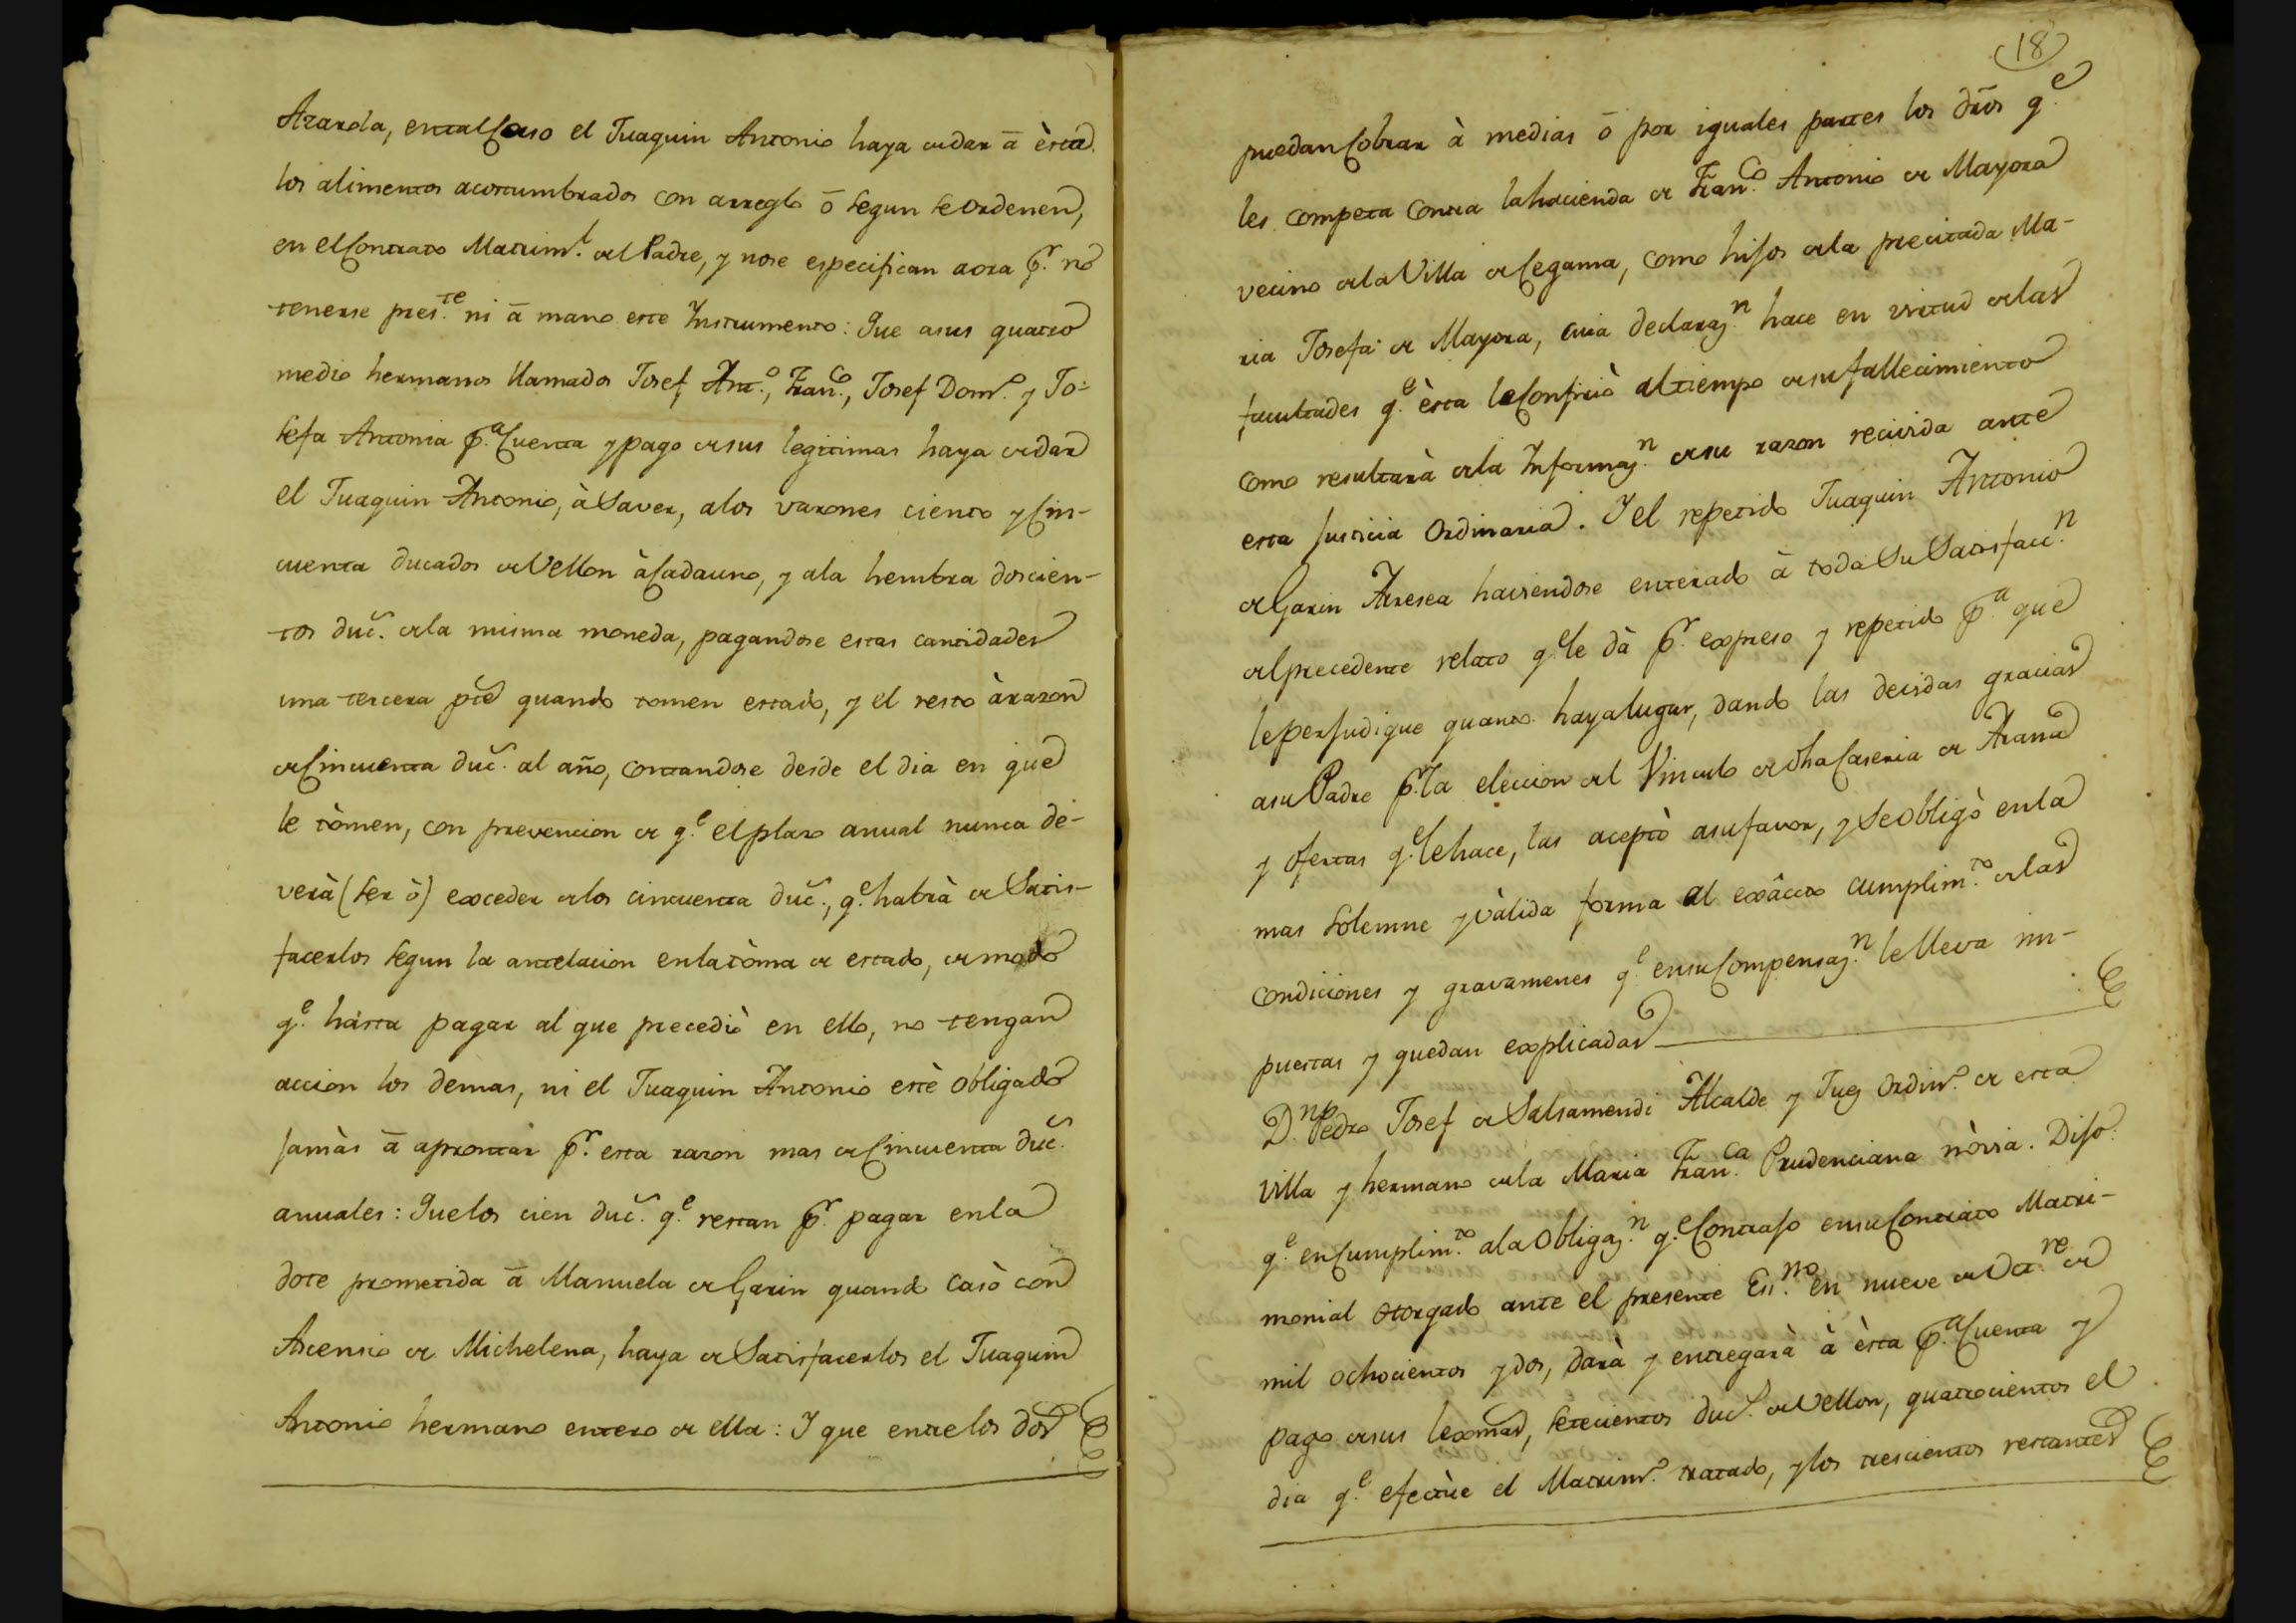 Azarola, en tal Caso el Juaquin Antonio haya de dar â èsta
los alimentos acostumbrados con arreglo ô segun se ordenen,
en el Contrato Matrim.l del Padre, y no se especifican aora p.r no
tenerse pres.te ni â mano este Instrumento: Que a sus quatro
medio hermanos llamados Josef Ant.o, Fran.co, Josef Dom.o y Jo-
sefa Antonia p.a Cuenta y pago de sus legitimas haya de dar
el Juaquin Antonio, à Saver, a los varones ciento y Cin-
cuenta ducados de Vellon à Cada uno, y a la hembra doscien-
tos duc.s de la misma moneda, pagandose estas cantidades
una tercera pte quando tomen estado, y el resto à razon
de Cincuenta duc.s al año, contandose desde el dia en que
le tòmen, con prevencion de q.e el plazo anual nunca de-
verà (ser ò) exceder de los cincuenta duc.s, q.e habrà de Satis-
facerlos segun la antelacion en la tòma de estado, de modo
q.e hàsta pagar al que precediò en ello, no tengan
accion los demas, ni el Juaquin Antonio estè obligado
jamàs â aprontar p.r esta razon mas de Cincuenta duc.s
anuales: Que los cien duc.s q.e restan p.r pagar en la
dote prometida â Manuela de Garin quando casò con
Ascensio de Michelena, haya de Satisfacerlos el Juaquin
Antonio hermano entero de ella: Y que entre los dos
18
puedan Cobrar à medias ô por iguales partes los dros q.e
les competa contra la hacienda de Fran.co Antonio de Mayora
vecino de la Villa de Cegama, como hijos de la precitada Ma-
ria Josefa de Mayora, cuia declaraz.n hace en virtud de las
facultades q.e èsta le Confiriò al tiempo de su fallecimiento
como resultarà de la Informaz.n de su razon recivida ante
esta Justicia Ordinaria. Y el repetido Juaquin Antonio
de Garin Arresea haviendose enterado à toda Su Satisfacc.n
del precedente relato q.e le dà p.r expreso y repetido p.a que
le perjudique quanto haya lugar, dando las devidas gracias
a su Padre p.r la eleccion del Vinculo de dha Caseria de Arana
y ofertas q.e le hace, las aceptò a su favor, y Se obligò en la
mas solemne y vàlida forma al exâcto cumplim.to de las
condiciones y gravamenes q.e en su Compensaz.n le lleva im-
puestas y quedan explicadas
D.n Pedro Josef de Salsamendi Alcalde y Juez Ordin.o de esta
villa y hermano de la Maria Fran.ca Prudenciana nòvia. Dijo
q.e en Cumplim.to a la Obligaz.n q.e Contrajo en su Contrato Matri-
monial otorgado ante el presente Es.no en nueve de Oct.re de
mil ochocientos y dos, darà y entregarà à èsta p.a Cuenta y
pago de sus lexmas, setecientos duc.s de Vellon, quatrocientos el
dia q.e efectùe el Matrim.o tratado, y los trescientos restantes